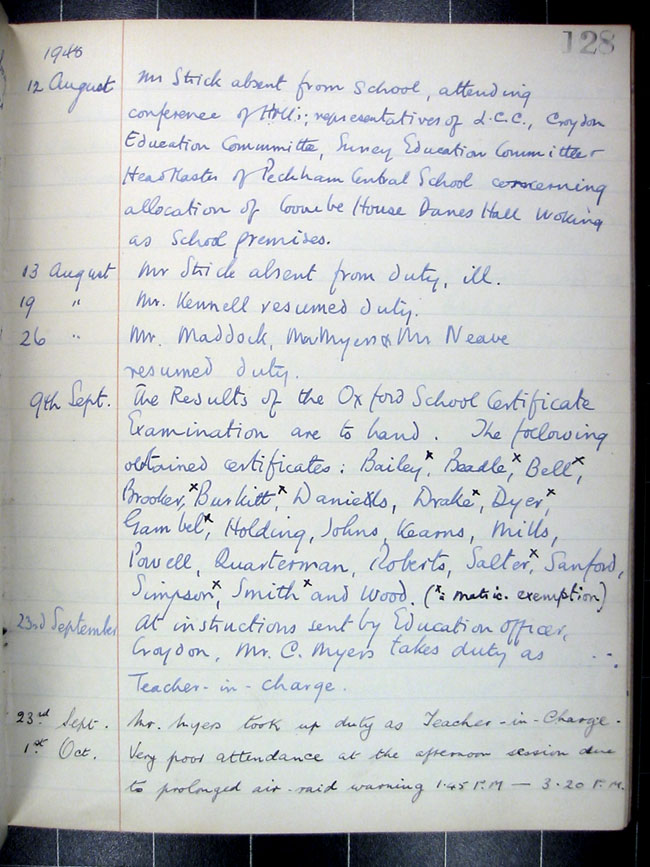 128
1940
12 August Mr Strick absent from School, attending
conference of H.M.I.; representatives of L.C.C., Croydon
Education Committee, Surrey Education Committee &
HeadMaster of Peckham Central School concerning
allocation of Coombe House Danes Hall Woking
as School premises.
13 August Mr Strick absent from duty, ill.
19 " Mr. Kennell resumed duty.
26 " Mr. Maddock, Mr Myers & Mr Neave
resumed duty.
9th Sept. The Results of the Oxford School Certificate
Examination are to hand. The following
obtained certificates: Bailey,x Beadle,x Bell,x
Brooker,x Burkitt,x Daniells, Drake,x Dyer,x
Gambel,x Holding, Johns, Kearns, Mills,
Powell, Quarterman, Roberts, Salter,x Sanford,
Simpson,x Smithx and Wood. (x = matric. exemption)
23rd September At instructions sent by Education officer,
Croydon, Mr. C. Myers takes duty as
Teacher-in-charge.
23rd Sept. Mr. Myers took up duty as Teacher-in-Charge.
1st Oct. Very poor attendance at the afternoon session due
to prolonged air-raid warning 1.45 P.M — 3.20 P.M.